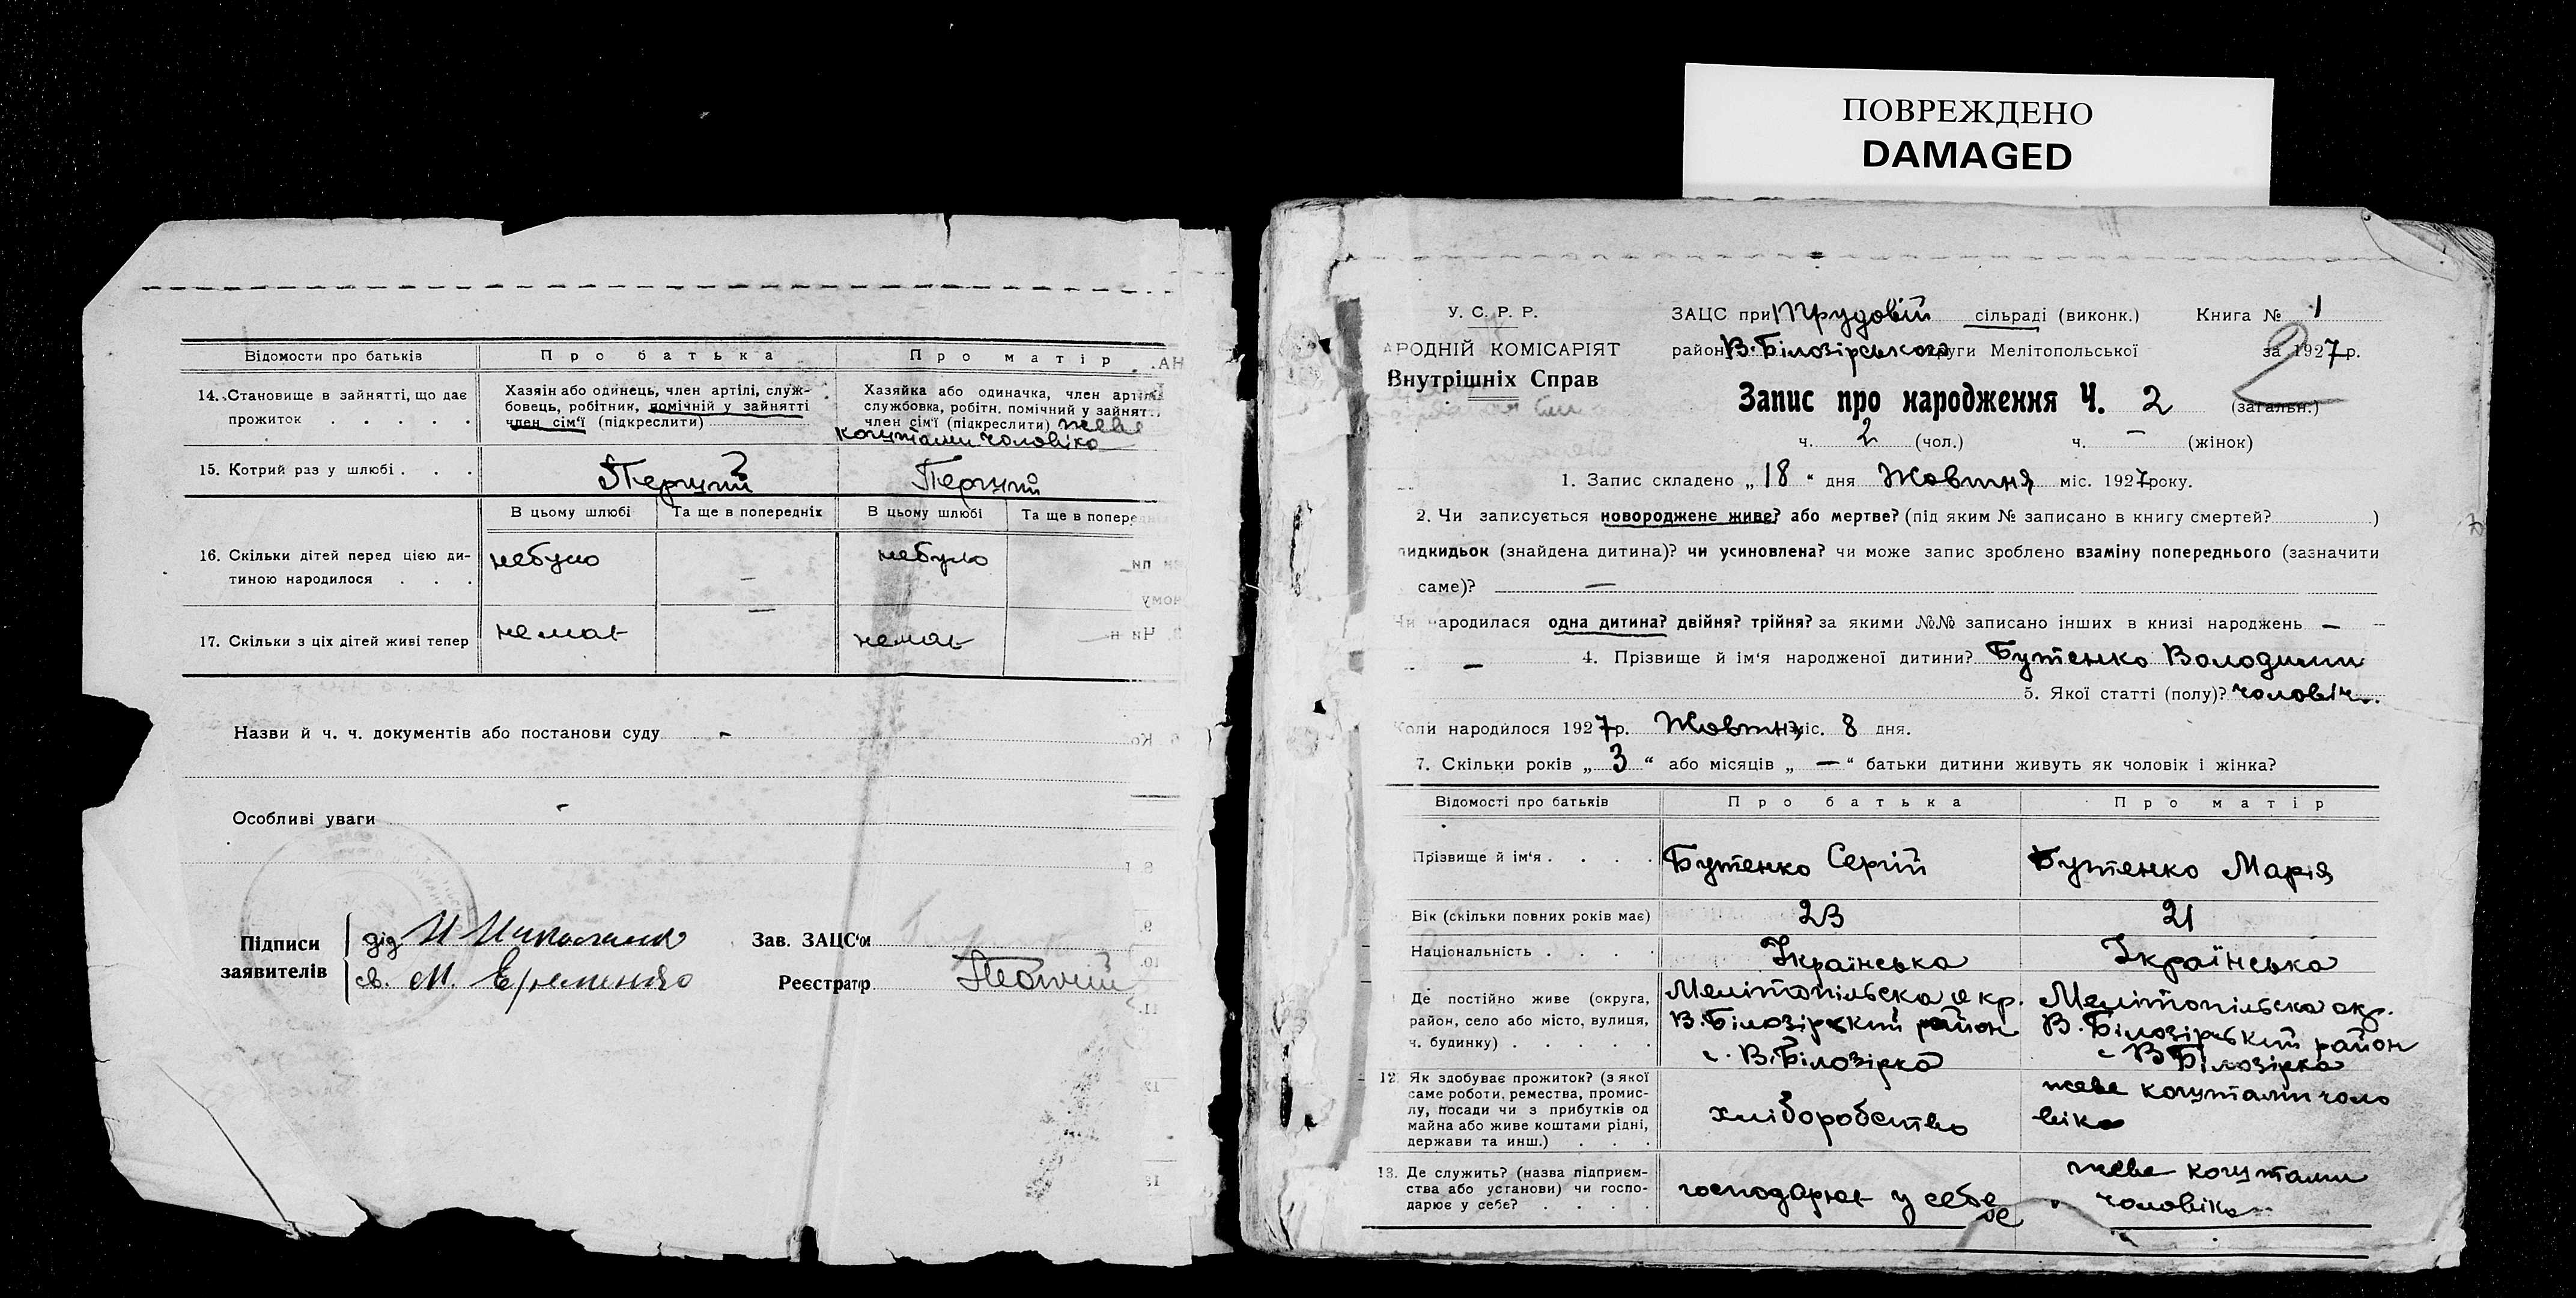 ПОВРЕЖДЕНО
DAMAGED
Відомости про батьків
Про батька
Про матір
14. Становище в зайнятті, що дає
прожиток . . . . .
Хазяін або одинець, член артілі, служ-
бовець, робітник, помічній у зайнятті
член сім'ї (підкреслити)
Хазяйка або одиначка, член арті
службовка, робітн. помічний у зайнят
член сім'ї (підкреслити) живе
коштами чоловіка
15. Котрий раз у шлюбі . . .
Перший
Перший
В цьому шлюбі
Та ще в попередніх
В цьому шлюбі
Та ще в попере
16. Скільки дітей перед цією ди-
тиною народилося . . .
небуло
–
небуло
17. Скільки з ціх дітей живі тепер
немає
–
немає
Назви й ч. ч. документів або постанови суду -
Особливі уваги -
Підписи
заявителів
дід И
св. М. Еременко
Зав. ЗАЦС'ом
Реєстратор
У. С. Р. Р.
АРОДНІЙ КОМІСАРІЯТ
Внутрішніх Справ
ЗАЦС при Трудовій сільраді (виконк.) Книга № 1
район В. Білозірського руги Мелітопольської за 1927 р.
2
Запис про народження Ч. 2 (загальн.)
ч. 2 (чол.) ч. – (жінок)
1. Запис складено „18“ дня Жовтня міс. 1927 року.
2. Чи записується новороджене живе? або мертве? (під яким № записано в книгу смертей? )
идкидьок (знайдена дитина)? чи усиновлена? чи може запис зроблено взаміну попереднього (зазначити
саме)? –
ародилася одна дитина? двійня? трійня? за якими №№ записано інших в книзі народжень –
– 4. Прізвище й ім'я народженої дитини? Бутенко Володими
5. Якої статті (полу)? чоловіч.
оли народилося 1927 р. Жовтня міс. 8 дня.
7. Скільки років „3“ або місяців „–“ батьки дитини живуть як чоловік і жінка?
Відомості про батьків
Про батька
Про матір
Прізвище й ім'я . . . .
Бутенко Сергій
Бутенко Марія
Вік (скільки повних років має)
23
21
Національність . . . .
Українська
Українська
Де постійно живе (округа,
район, село або місто, вулиця,
ч. будинку) . . . . .
Мелітопільска окр.
В. Білозірський район
с. В. Білозірка
Мелітопільска окр.
В. Білозірський район
с В Білозірка
12. Як здобуває прожиток? (з якої
саме роботи, ремества, промис-
лу, посади чи з прибутків од
майна або живе коштами рідні,
держави та инш.) . . .
хліборобство
живе коштами чоло
віка
13. Де служить? (назва підприєм-
ства або установи) чи госпо-
дарює у себе? . . . .
господарює у себе
живе коштами
чоловіка